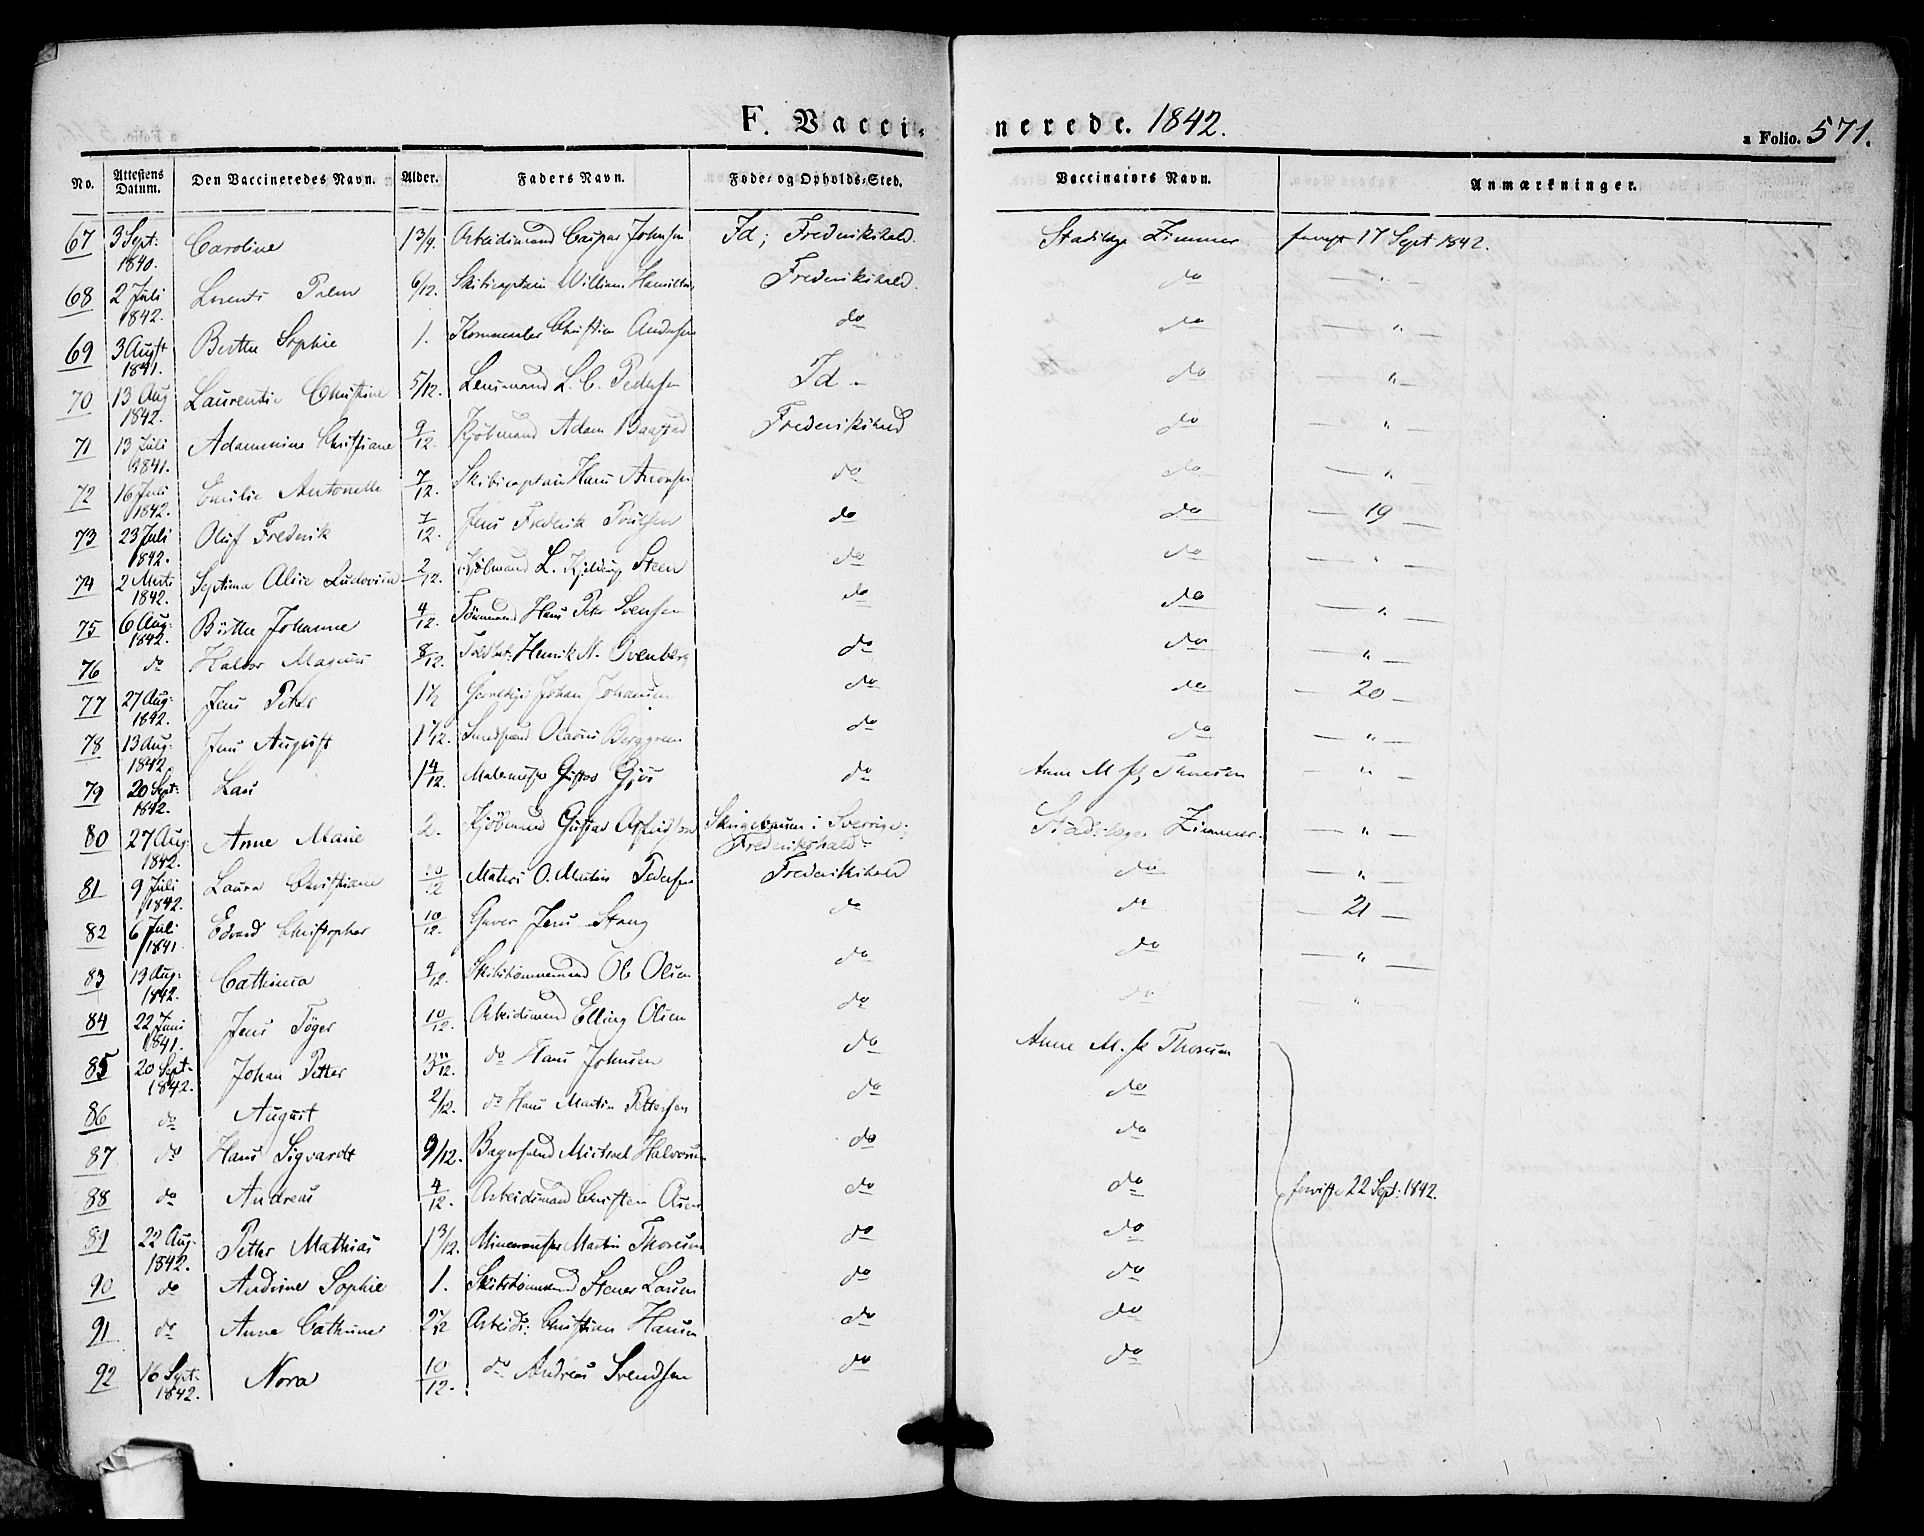 F. Vaccinerede. 1842. a Folio. 571.
No. Attestens Datum. Den Vaccineredes Navn. Alder. Faders Navn. Føde- og Opholds-Sted. Vaccinators Navn. Anmærkninger.
67 3 Sept: 1840. Caroline 1 3/4 Arbeidsmand Caspar Johnsen Id; Frederikshald. Zimmer 17 Sept 1842.
68 2 Juli 1842. Lorents 6/12. Skibscaptain William Frederikshald. do — " —
69 3 Augst 1841. Berthe Sophie 1. Christian Andersen do do — " —
70 13 Aug 1842. Laurentie Christine 5/12. Lensmand L. C. Pedersen Id - do — " —
71 13 Juli 1841. Adammine Christiane 9/12. Kjøbmand Adam Frederikshald do — " —
72 16 Juli 1842. Emilie Antonette 7/12. Skibscaptain Hans do do — " —
73 23 Juli 1842. Oluf Frederik 7/12. Jens Frederik Poulsen do do — 19 —
74 2 1842. Septima Ludovica 2/12. Kjøbmand L. Steen do do — " —
75 6 Aug: 1842. Berthe Johanne 4/12. Tømmermand Hans Peter Svensen do do — " —
76 do Halvor Magnus 8/12. Henrik N. do do — " —
77 27 Aug: 1842. Jens Peter 1 1/2 Johan Johansen do do — 20 —
78 13 Aug: 1842. Jens August Olaves Berggreen do do — " —
79 20 Sept: 1842. 1 4/12. Malermester Gustav do Anne M. Thoresen — " —
80 27 Aug: 1842. Anne Marie 2. Kjøbmand Gustav i Sverrige; Frederikshald - Zimmer. — " —
81 9 Juli 1842. Laura Christiane 10/12 Matros O. Martin Pedersen Frederikshald do — " —
82 6 Juli 1841. Edvard Christopher 10/12. Garver Jens Stang do do — 21 —
83 13 Aug: 1842. Cathinca 9/12. Skibstømmermand Ole Olsen do do — " —
84 22 Juni 1841. Jens Töger 10/12. Arbeidsmand Elling Olsen do do — " —
85 20 Sept- 1842. Johan Petter 3 do Hans Johnsen do Anne M. Thoresen
86 do August 2/12. do Hans Martin Pettersen do do
87 do Hans Sigvardt 9/12. Michael Halvorsen do do
88 do Andreas 4/12. Arbeidsmand Christen Olsen do do 22 Sept: 1842.
89 22 Aug: 1842. Petter Mathias 1 3/12. Martin Thoresen do do
90 do Andrine Sophie 1. Skibstømmermand Stener Larsen do do
91 do Anne Cathrine Arbeids: Christian Hansen do do
92 16 Sept- 1842. Nora 10/12. do Andreas Svendsen do do